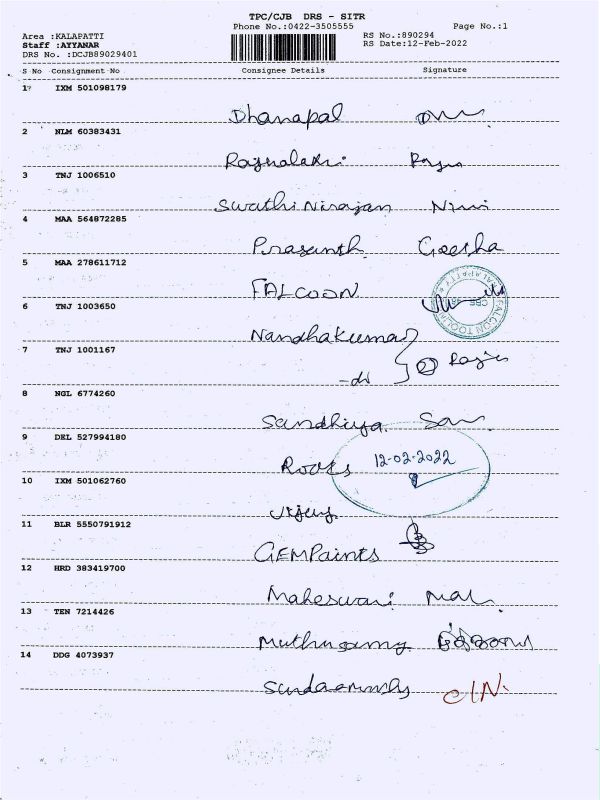 TPC/CJB DRS - SITR
Phone No.:0422-3505555 Page No.:1
Area :KALAPATTI RS No.:890294
Staff :AYYANAR RS Date:12-Feb-2022
DRS No. :DCJB89029401
S No Consignment No Consignee Details Signature
1 IXM 501098179
Dhanapal
2 NLM 60383431
3 TNJ 1006510
Swathi Niranjan
4 MAA 564872285
Prasanth Geetha
5 MAA 278611712
FALCOON
6 TNJ 1003650
Nandhakumar
7 TNJ 1001167
-do 2
8 NGL 6774260
Sandhiya San
9 DEL 527994180
Roots 12-02-2022
10 IXM 501062760
Vijay
11 BLR 5550791912
GEM Paints
12 HRD 383419700
Maheswari Mal
13 TEN 7214426
Muthusamy
14 DDG 4073937